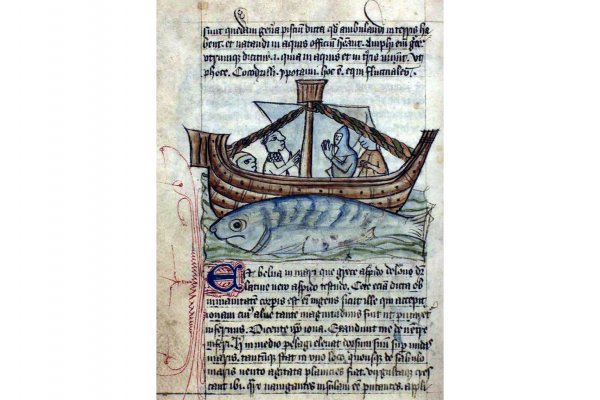 sunt quedam gena pisciū dicta qd ambulandi in terris ha
bent. et natandi in aquis officiū Amphi em
utrumque dicitur .i. quia in aquis et in uiuūt. ut
phoce. Cocodrilli. ypotami. hoc ē. equi fluctuales.
Est belua in mari que grece aspido delone dr
latine uero aspido testudo. Cete eciā dicta ob
inmanitatē corpis est eī ingens sicut ille qui accepit
ionam cuiꝰ aluꝰ tante magnitudinis fuit ut putaret
infernus. Dicente ipo iona. Exaudiuit me de uentre
inferi. in medio pelagi eleuat dorsum suū undas
maris. stat in uno loco. quousque de sabulo
maris uento agitata planicies fiat. cres
cant ibi. nauigantes insulam eē putantes. appli